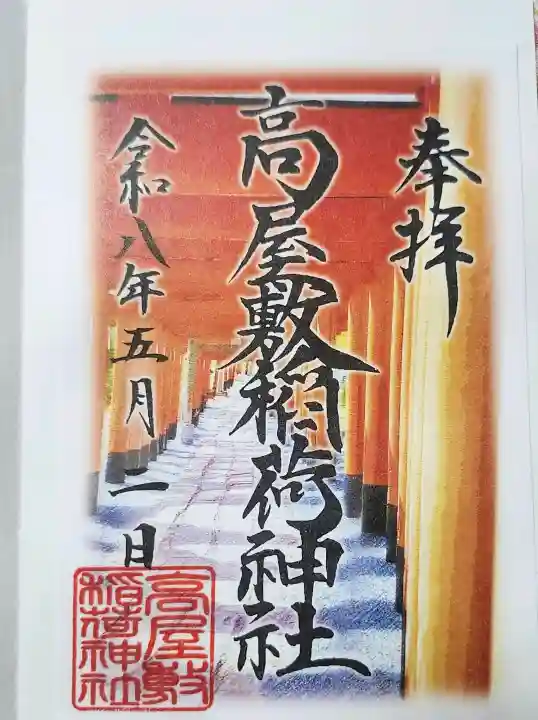 奉拝
高屋敷稲荷神社
令和八年五月二日
高屋敷
稲荷神社